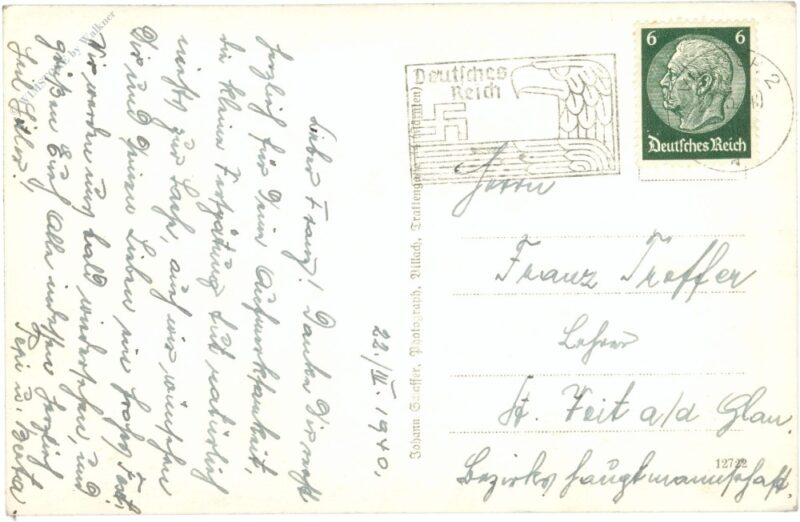 22./III. 1940,
Lieber Franz! Danke Dir recht
herzlich für Deine Aufmerksamkeit,
die kleine Verspätung tut natürlich
nichts zur Sache, auch wir wünschen
Dir und Deinen Lieben ein frohes Fest.
Wir werden uns bald wiedersehen, und
grüßen Euch Alle indessen herzlich
Heil Hitler! Pepi u. Berta.
by Walkner
Johann Schaffer, Photograph, Villach, Trattengasse (Kärnten)
Deutsches
Reich
6 6
Deutsches Reich
2
Herrn
Franz Treffer
Lehrer
St. Veit a/d Glan.
12722
Bezirkshauptmannschaft.